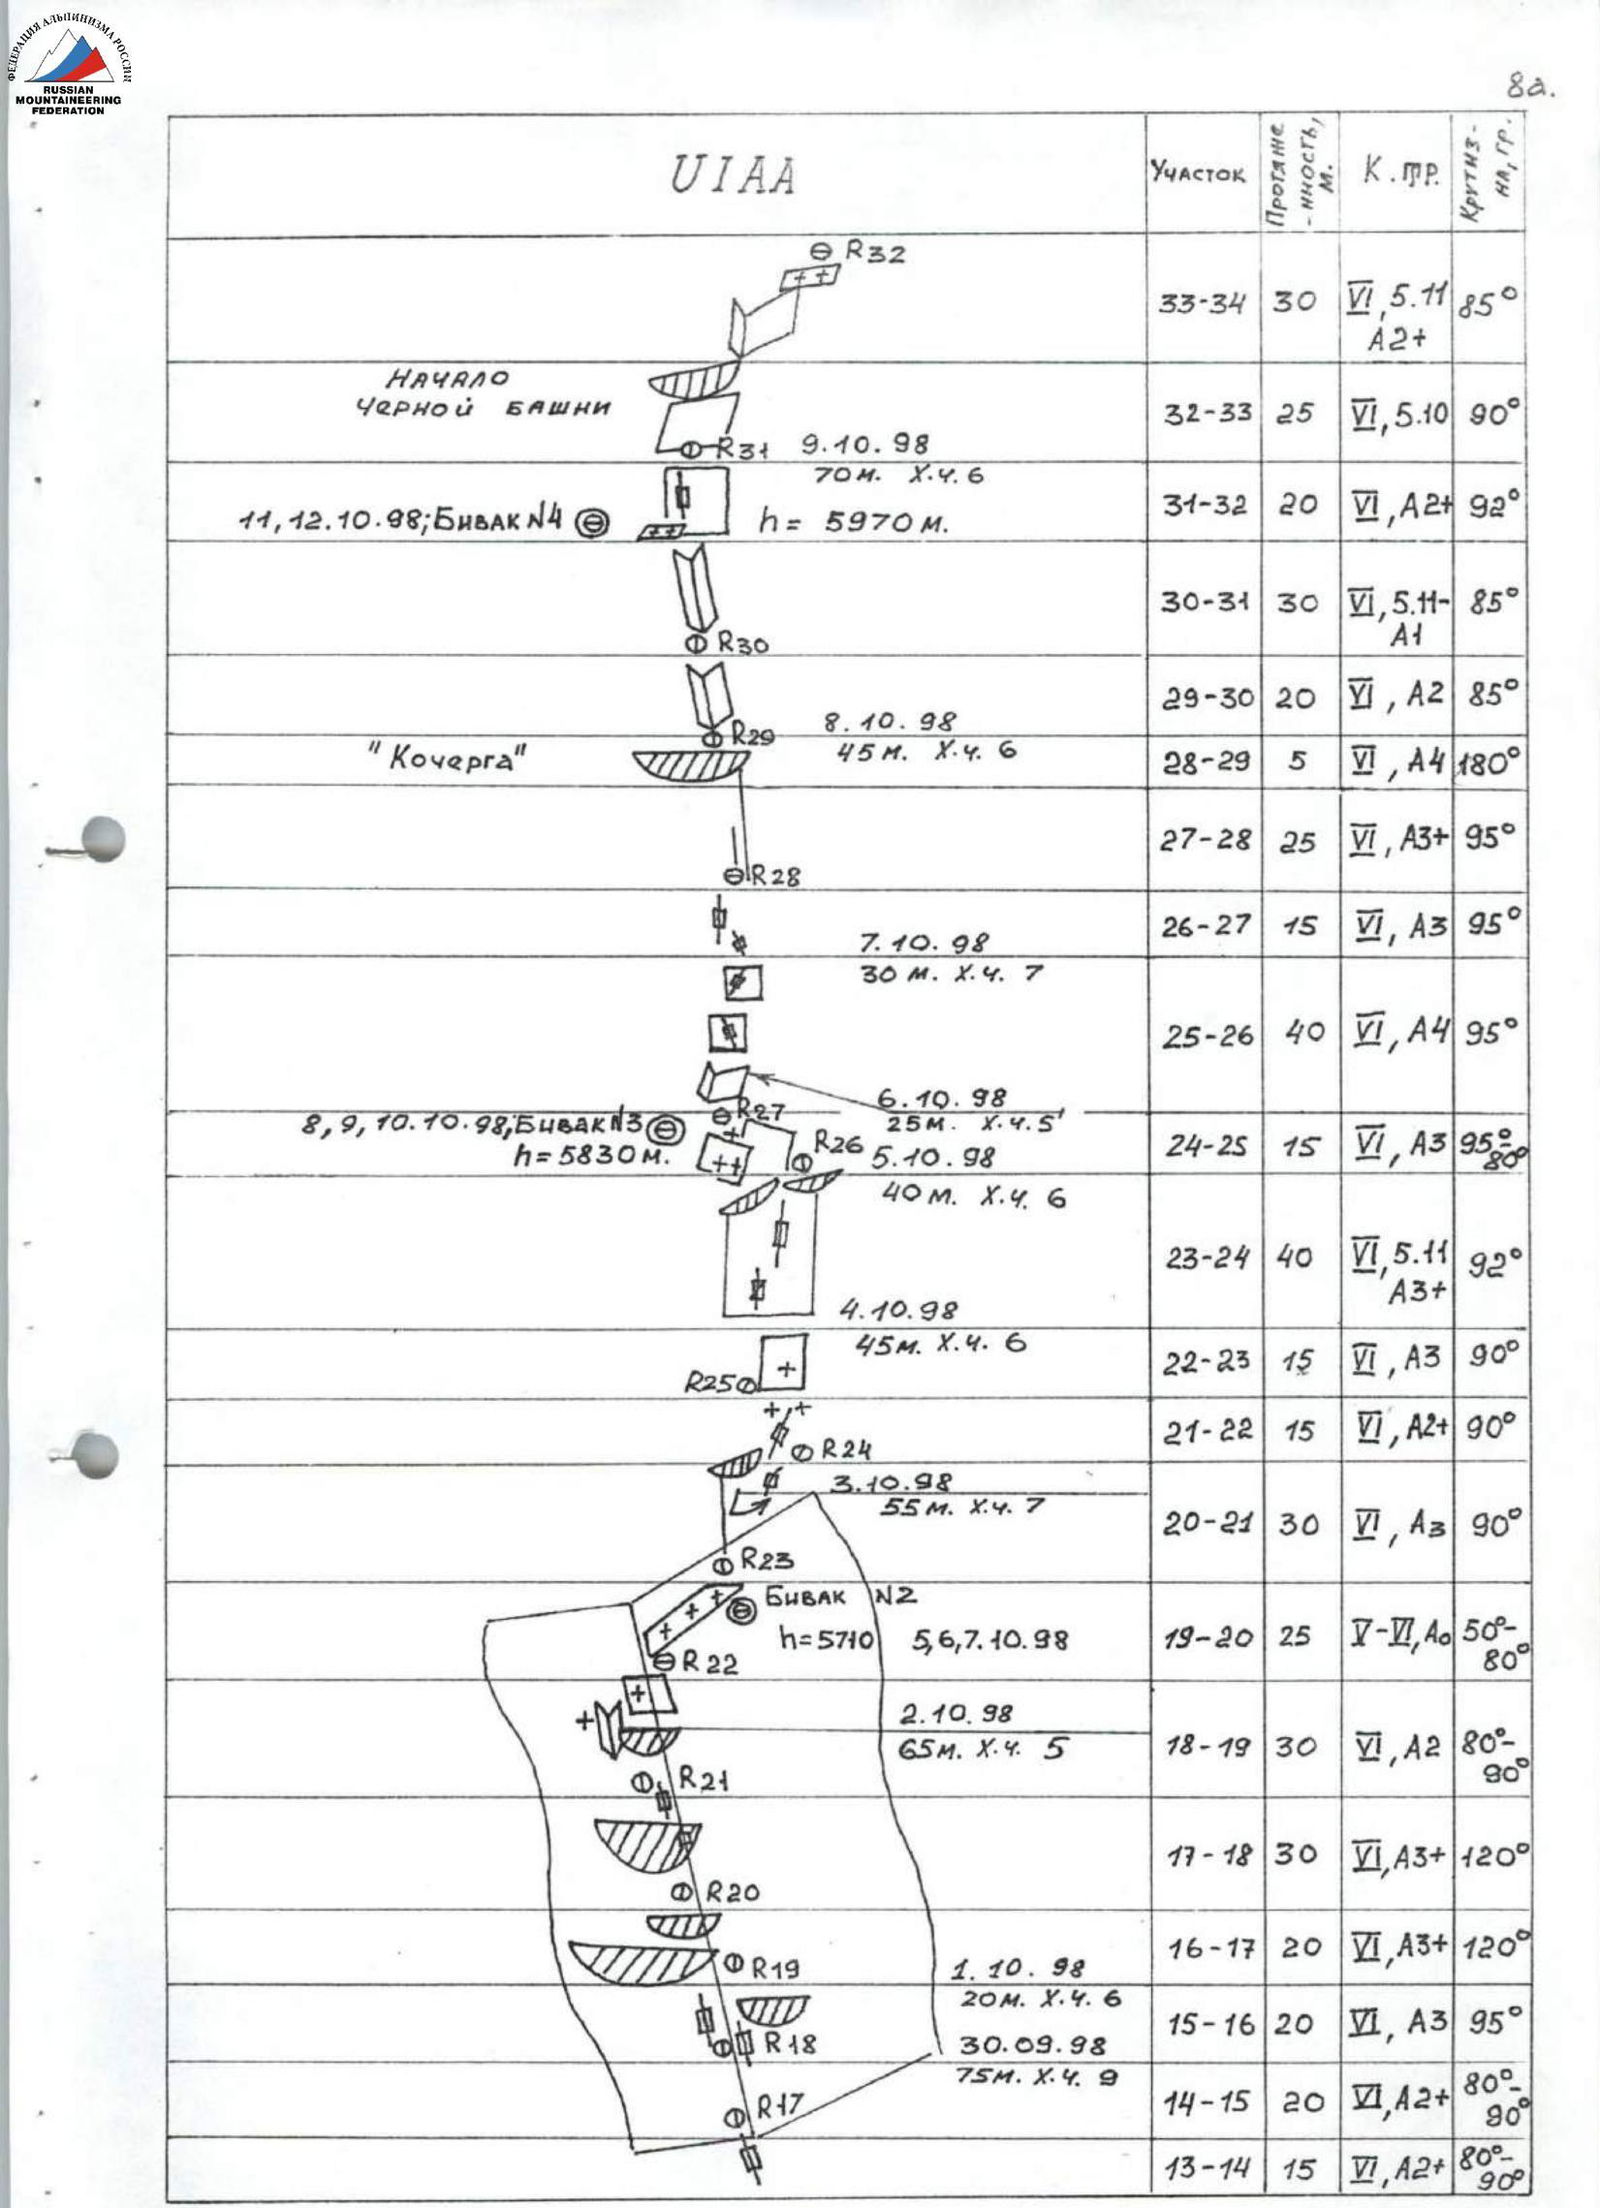 ФЕДЕРАЦИЯ АЛЬПИНИЗМА РОССИИ
RUSSIAN
MOUNTAINEERING
FEDERATION
8а.
UIAA
Участок
Протяже
-нность,
м.
К.тр.
Крутиз-
на, гр.
R32
33-34 30 VI, 5.11 85°
A2+
Начало
Черной башни
32-33 25 VI, 5.10 90°
R31 9.10.98
70м. Х.ч. 6
31-32 20 VI, A2+ 92°
11,12.10.98; Бивак N4
h = 5970 м.
30-31 30 VI, 5.11- 85°
A1
R30
29-30 20 VI, A2 85°
R29 8.10.98
45м. Х.ч. 6
"Кочерга"
28-29 5 VI, A4 180°
27-28 25 VI, A3+ 95°
R28
26-27 15 VI, A3 95°
7.10.98
30 м. Х.ч. 7
25-26 40 VI, A4 95°
6.10.98
25м. Х.ч. 5
R27
8,9,10.10.98; Бивак N3
h=5830 м.
R26 5.10.98
40м. Х.ч. 6
24-25 15 VI, A3 95°-
80°
23-24 40 VI, 5.11 92°
A3+
4.10.98
45м. Х.ч. 6
22-23 15 VI, A3 90°
R25
21-22 15 VI, A2+ 90°
R24
3.10.98
55м. Х.ч. 7
20-21 30 VI, A3 90°
R23
Бивак N2
h=5710 5,6,7.10.98
19-20 25 V-VI, A0 50°-
80°
R22
2.10.98
65м. Х.ч. 5
18-19 30 VI, A2 80°-
90°
R21
17-18 30 VI, A3+ 120°
R20
16-17 20 VI, A3+ 120°
R19 1.10.98
20м. Х.ч. 6
15-16 20 VI, A3 95°
R18 30.09.98
75м. Х.ч. 9
14-15 20 VI, A2+ 80°-
90°
R17
13-14 15 VI, A2+ 80°-
90°